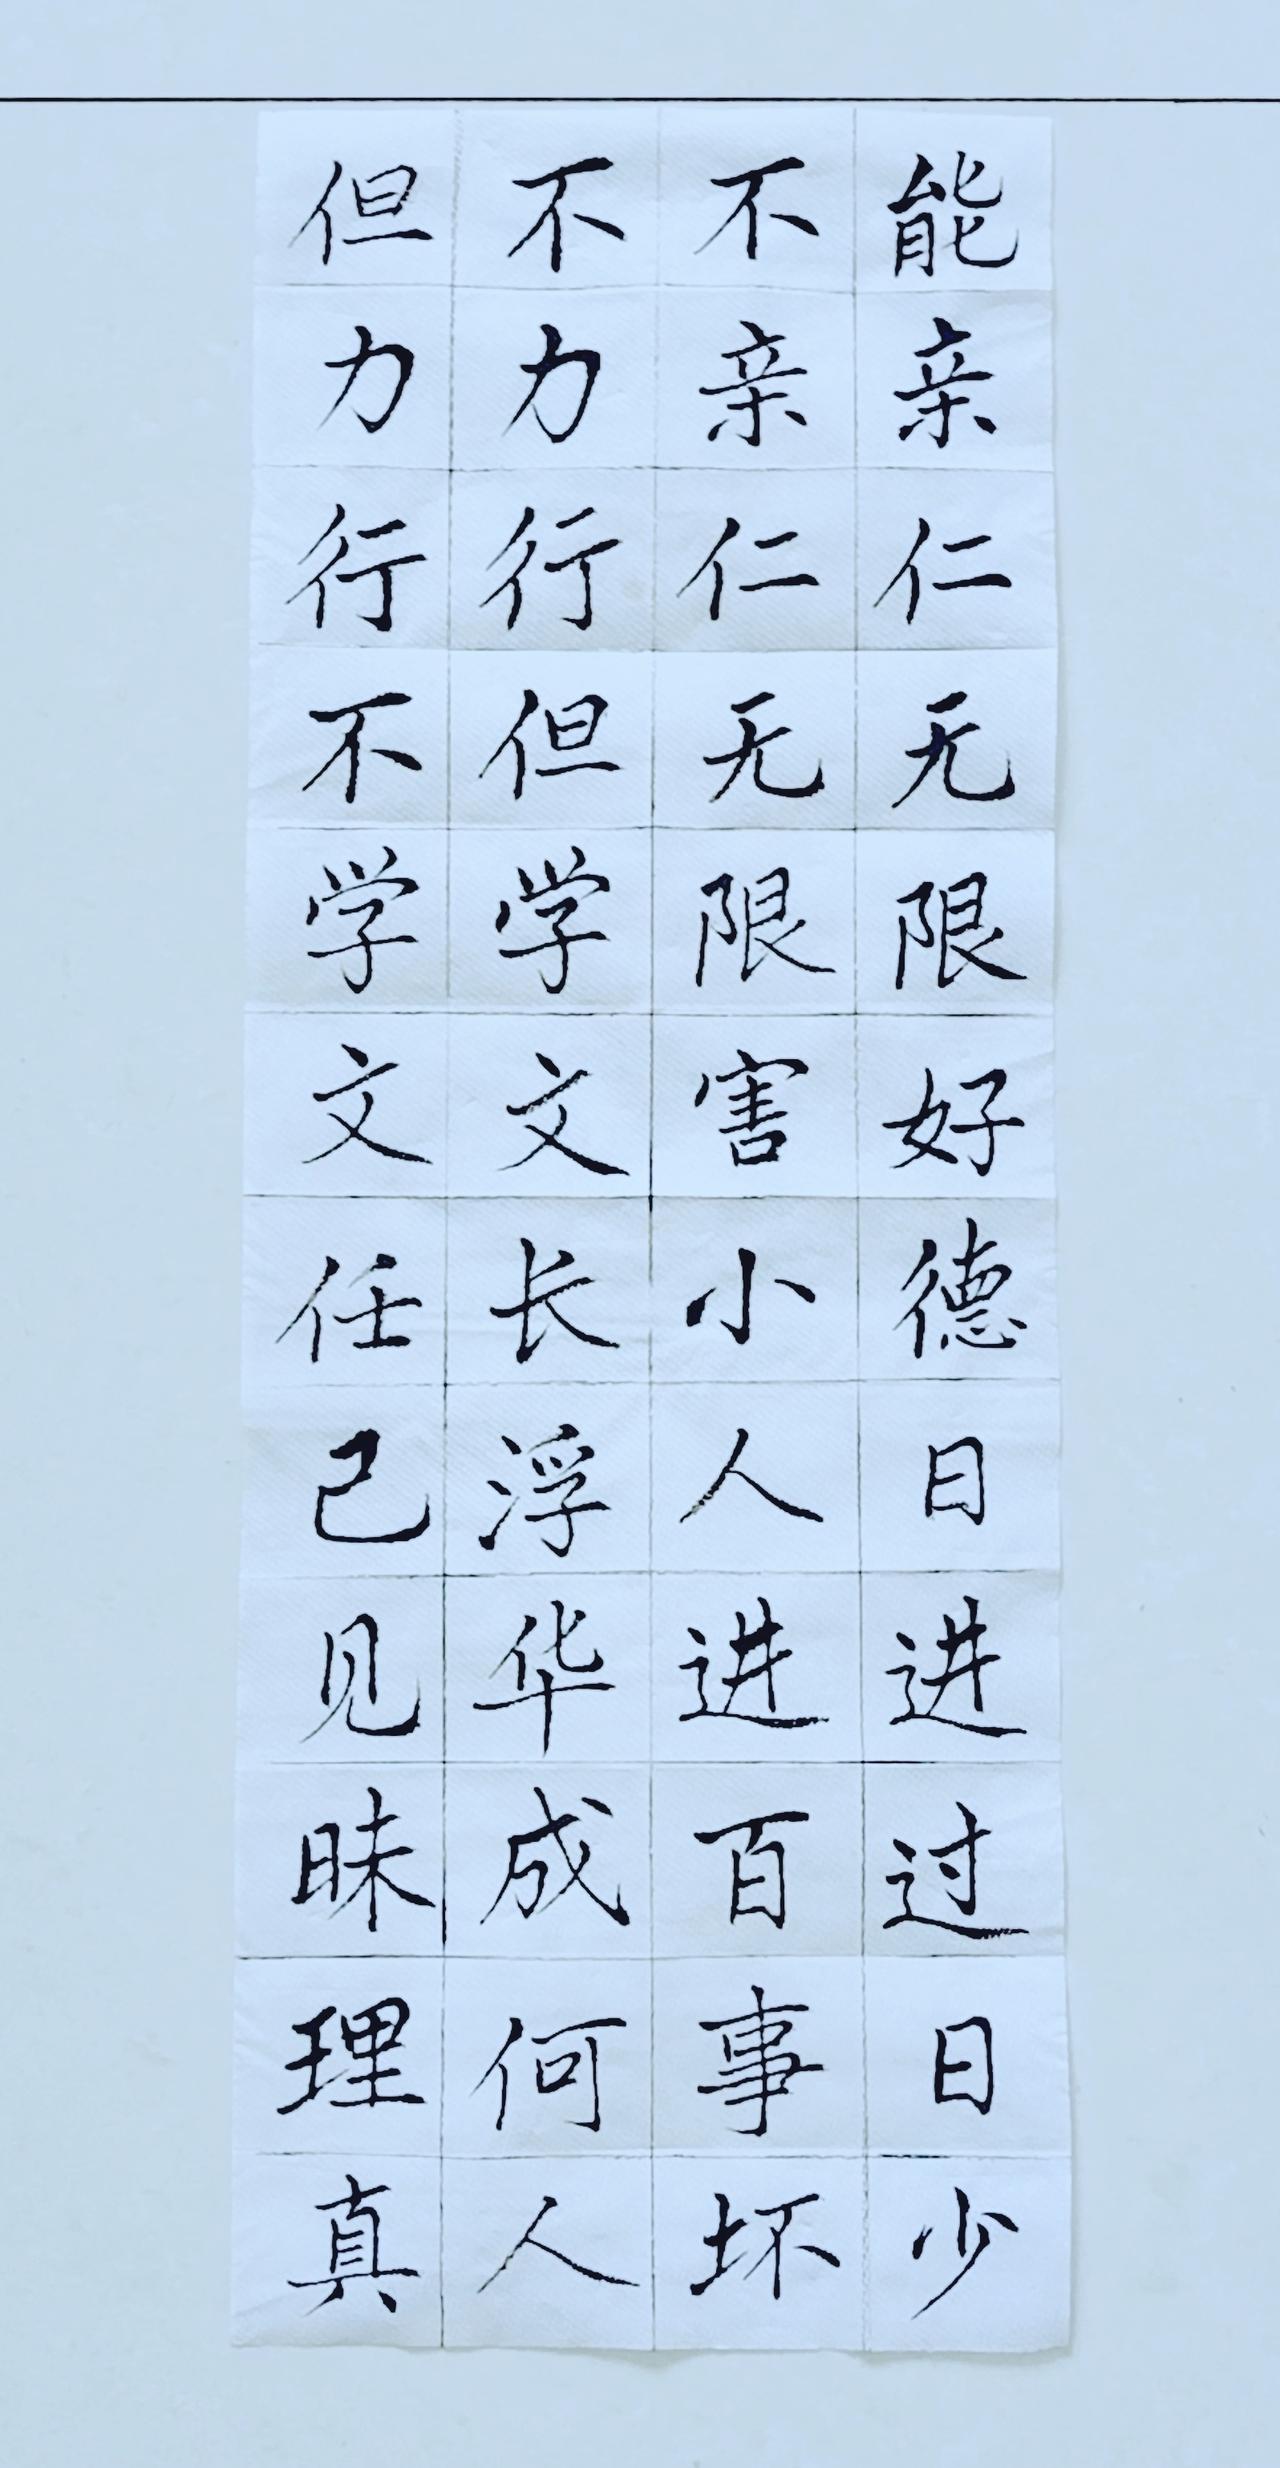 能亲仁无限好德日进过日少
不亲仁无限害小人进百事坏
不力行但学文长浮华成何人
但力行不学文任己见昧理真